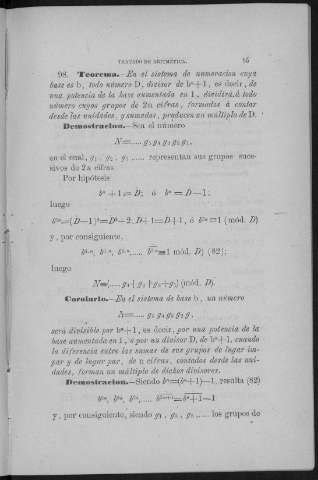 TRATADO DE ARITMÉTICA. 45
98. Teorema.—En el sistema de numeracion cuya
base es b, todo número D, divisor de bⁿ+1, es decir, de
una potencia de la base aumentada en 1, dividirá á todo
número cuyos grupos de 2n cifras, formados á contar
desde las unidades, y sumados, producen un múltiplo de D.
Demostracion.—Sea el número
N=..... g₅ g₄ g₃ g₂ g₁,
en el cual, g₁, g₂, g₃ ..... representan sus grupos suce-
sivos de 2n cifras.
Por hipótesis
bⁿ+1=D; ó bⁿ=D—1;
luego
b²ⁿ=(D—1)²=D²—2.D+1=D+1, ó b²ⁿ≡1 (mód. D)
y, por consiguiente,
≡1 (mód. D) (82);
luego
N≡(.....g₄+g₃+g₂+g₁) (mód. D).
Corolario.—En el sistema de base b, un número
N=..... g₅ g₄ g₃ g₂ g₁
será divisible por bⁿ+1, es decir, por una potencia de la
base aumentada en 1, ó por un divisor D, de bⁿ+1, cuando
la diferencia entre las sumas de sus grupos de lugar im-
par y de lugar par, de n cifras, contados desde las uni-
dades, forman un múltiplo de dichos divisores.
Demostracion.—Siendo bⁿ=(bⁿ+1)—1, resulta (82)
y, por consiguiente, siendo g₁, g₂, g₃, ..... los grupos de